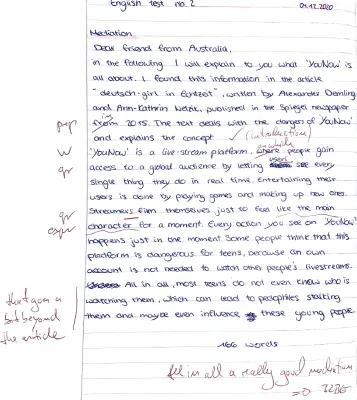 English test no. 2
01.12.2020
Mediation
Dear friend from Australia,
in the following I will explain to you what 'YouNow' is
all about. I found this information in the article
"deutsch-girl in Echtzeit", written by Alexander Demling
and Ann-Kathrin Nezik, published in the Spiegel newspaper
from 2015. The text deals with the dangers of YouNow
and explains the concept ✓ (introduction)
'YouNow' is a live-stream platform, where people gain
access to a global audience by letting users see every
single thing they do in real time. Entertaining their
users is done by playing games and making up new ones.
Streamers film themselves just to feel like the main
character for a moment. Every action you see on 'YouNow'
happens just in the moment. Some people think that this
platform is dangerous for teens, because an own
account is not needed to watch other people's livestreams.
All in all, most teens do not even know who is
watching them, which can lead to pedophiles stalking
them and maybe even influence these young people.
166 words
W
gr
gr
that goes a
bit beyond
the article
all in all a really good mediation